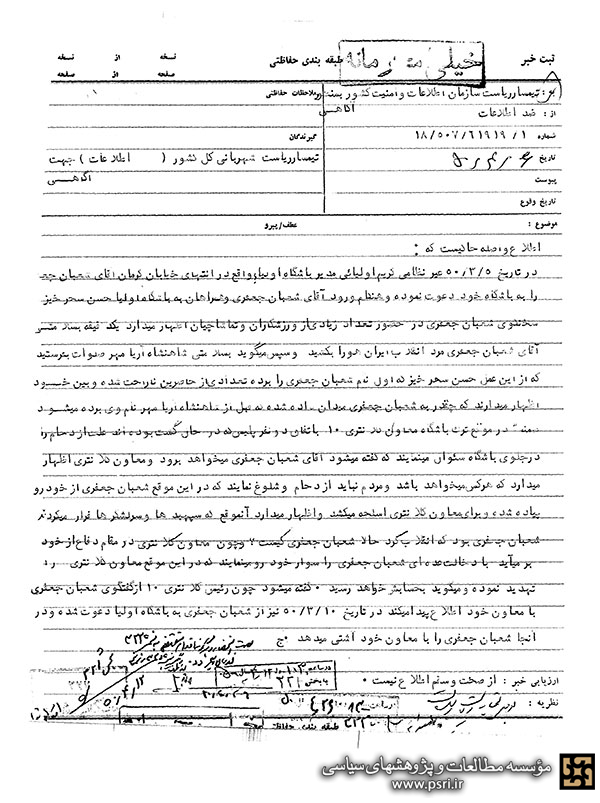 ثبت خبر
خیلی محرمانه
طبقه بندی حفاظتی
نسخه از نسخه
صفحه از صفحه
به: تیمسار ریاست سازمان اطلاعات و امنیت کشور
ملاحظات حفاظتی
آگاهی
از: ضد اطلاعات
شماره ۱۸/۵۰۷/۶۱۹۱۹/۱
گیرندگان
تاریخ
تیمسار ریاست شهربانی کل کشور ( اطلاعات ) جهت
آگاهی
پیوست
تاریخ وقوع
موضوع :
عطف/پیرو
اطلاع واصله حاکیست که :
در تاریخ ۵۰/۳/۵ غیر نظامی کریم اولیائی مدیر باشگاه اولیا واقع در انتهای خیابان کرمان آقای شعبان جعفری
را به باشگاه خود دعوت نموده و هنگام ورود آقای شعبان جعفری و همراهان به باشگاه اولیا حسن سحر خیز
سخنگوی شعبان جعفری در حضور تعداد زیادی از ورزشکاران و تماشاچیان اظهار میدارد یک نیفه بسلامتی
آقای شعبان جعفری مرد انقلاب ایران هورا بکشید وسپس میگوید بسلامتی شاهنشاه آریا مهر صلوات بفرستید
که از این عمل حسن سحر خیز که اول نام شعبان جعفری را برده تعدادی از حاضرین ناراحت شده و بین خود
اظهار میدارند که چقدر به شعبان جعفری میدان داده شده که قبل از شاهنشاه آریا مهر نام وی برده میشود
ضمناً در موقع ترک باشگاه معاون کلانتری ۱۰ باتفاق دو نفر پلیس که در حال گشت بوده اند علت ازدحام را
در جلوی باشگاه سئوال مینمایند که گفته میشود آقای شعبان جعفری میخواهد برود و معاون کلانتری اظهار
میدارد که هر کس میخواهد باشد ومردم نباید ازدحام و شلوغ نمایند که در این موقع شعبان جعفری از خودرو
پیاده شده و برای معاون کلانتری اسلحه میکشد واظهار میدارد آنموقع که سپهبد ها و سرلشکر ها فرار میکردند
شعبان جعفری بود که انقلاب کرد حالا شعبان جعفری کیست؟ وچون معاون کلانتری در مقام دفاع از خود
بر میآید با دخالت عده ای شعبان جعفری را سوار خودرو مینمایند که در این موقع معاون کلانتری را
تهدید نموده و میگوید بحسابش خواهد رسید ۰ گفته میشود چون رئیس کلانتری ۱۰ از گفتگوی شعبان جعفری
با معاون خود اطلاع پیدا میکند در تاریخ ۵۰/۳/۱۰ نیز از شعبان جعفری به باشگاه اولیا دعوت شده و در
آنجا شعبان جعفری را با معاون خود آشتی میدهد ۰ ج
ارزیابی خبر : از صحت و سقم اطلاع نیست ۰
نظریه :
طبقه بندی حفاظتی
مؤسسه مطالعات و پژوهشهای سیاسی
www.psri.ir